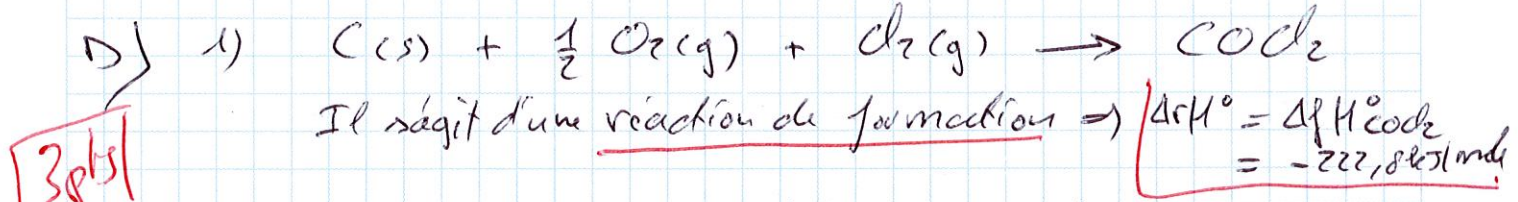 D) 1) C(s) + 1/2 O2(g) + Cl2(g) → COCl2
Il s'agit d'une réaction de formation => ΔrH° = ΔfH°COCl2
3pts
= -222,8 kJ/mole